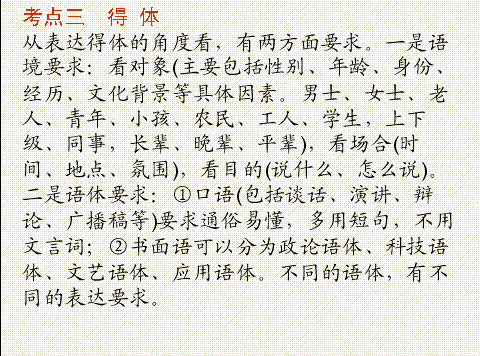 考点三　得 体
从表达得体的角度看，有两方面要求。一是语
境要求：看对象(主要包括性别、年龄、身份、
经历、文化背景等具体因素。男士、女士、老
人、青年、小孩、农民、工人、学生，上下
级、同事，长辈、晚辈、平辈)，看场合(时
间、地点、氛围)，看目的(说什么、怎么说)。
二是语体要求：①口语(包括谈话、演讲、辩
论、广播稿等)要求通俗易懂，多用短句，不用
文言词；②书面语可以分为政论语体、科技语
体、文艺语体、应用语体。不同的语体，有不
同的表达要求。